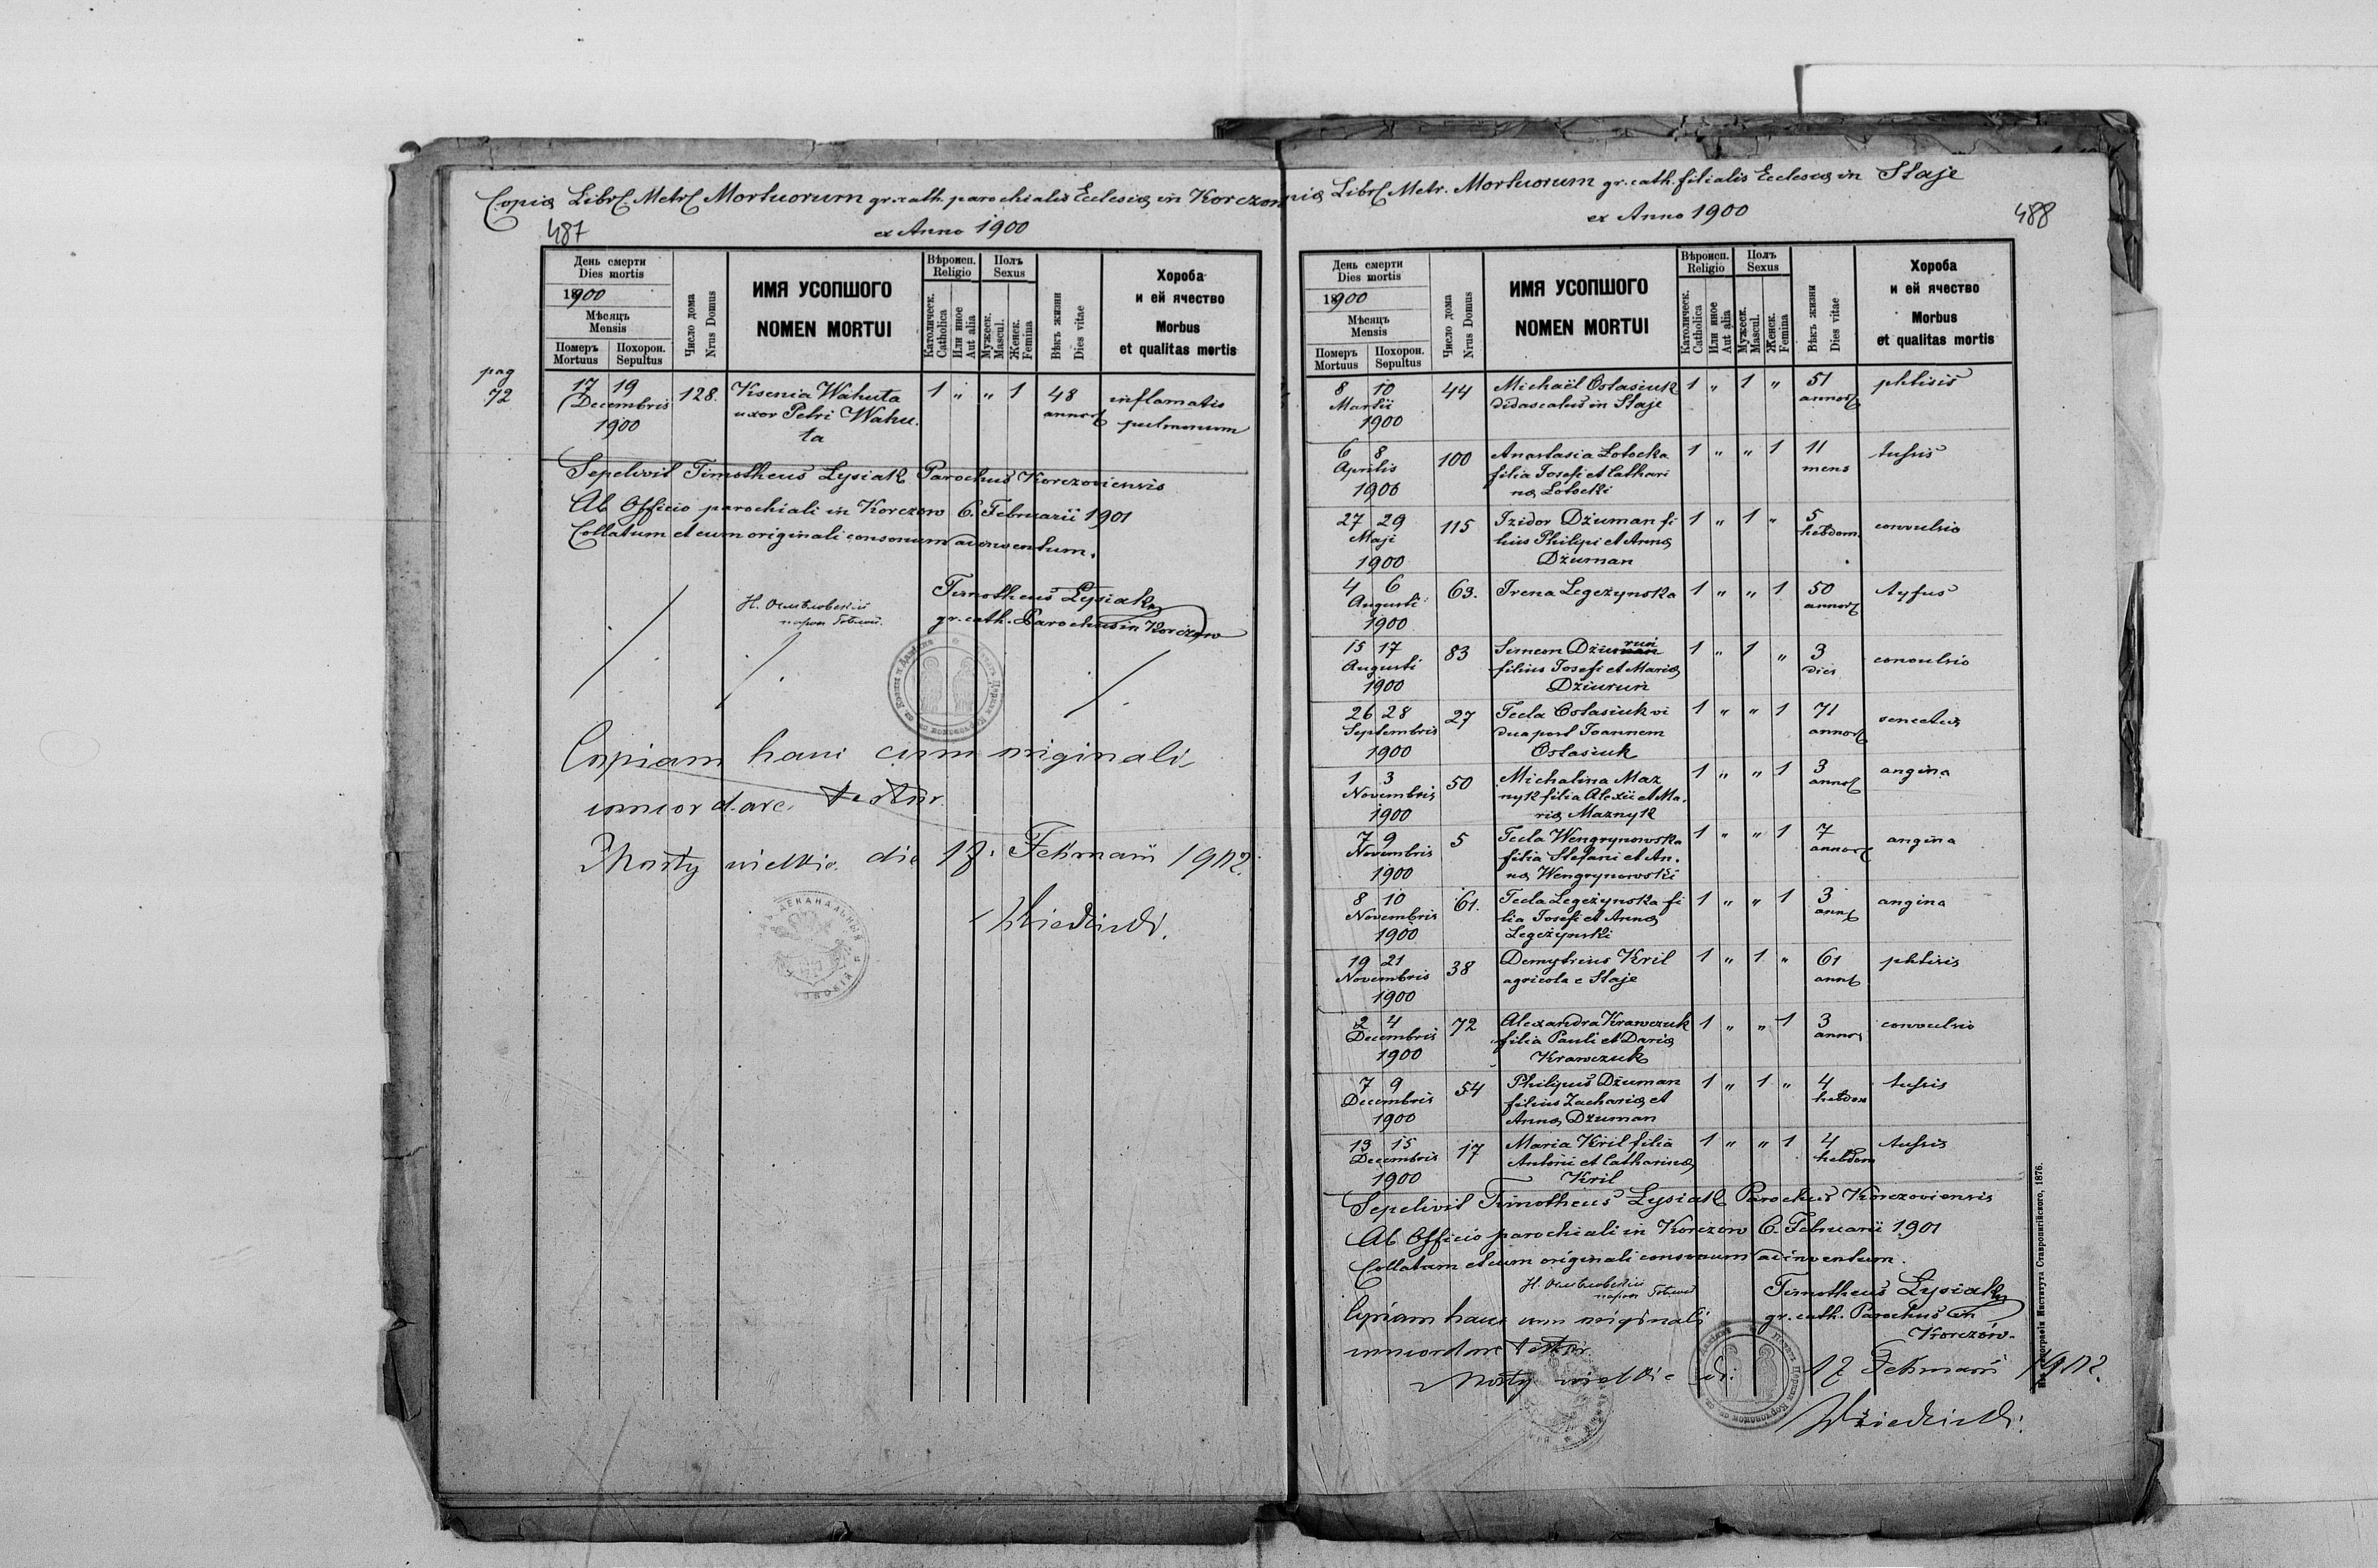 Copia Libr. Metr. Mortuorum gr. cath. parochialis Ecclesiæ in Korczow
ex Anno 1900
487
День смерти
Dies mortis
1900
Мѣсяць
Mensis
Померъ
Mortuus
Похорон.
Sepultus
Число дома
Nrus Domus
ИМЯ УСОПШОГО
NOMEN MORTUI
Вѣроисп.
Religio
Католическ.
Catholica
Или иное
Aut alia
Полъ
Sexus
Мужеск.
Mascul.
Женск.
Femina
Вѣкъ жизни
Dies vitae
Хороба
и ей ячество
Morbus
et qualitas mortis
pag
72
17 19 128. Ksenia Wahuta 1 „ „ 1 48 inflamatio
Decembris uxor Petri Wahu- annor pulmonum
1900 ta
Sepelivit Timotheus Lysiak Parochus Korczoviensis
Ab Officio parochiali in Korczow 6. Februarii 1901
Collatum et cum originali consonum adinventum.
Timotheus Lysiak
gr. cath. Parochus in Korczow
Copiam hanc cum originali
concordare testor.
Mosty wielkie die 17. Februarii 1902.
ДЕКАНАЛЬНЫЙ
Copia Libr. Metr. Mortuorum gr. cath. filialis Ecclesiæ in Staje
ex Anno 1900
488
День смерти
Dies mortis
1900
Мѣсяць
Mensis
Померъ
Mortuus
Похорон.
Sepultus
Число дома
Nrus Domus
ИМЯ УСОПШОГО
NOMEN MORTUI
Вѣроисп.
Religio
Католическ.
Catholica
Или иное
Aut alia
Полъ
Sexus
Мужеск.
Mascul.
Женск.
Femina
Вѣкъ жизни
Dies vitae
Хороба
и ей ячество
Morbus
et qualitas mortis
8 10 44 Michaël Ostasiuk 1 „ 1 „ 51 phtisis
Martii didascalus in Staje annor
1900
6 8 100 Anastasia Lotocka 1 „ „ 1 11 tussis
Aprilis filia Josefi et Cathari mens
1900 næ Lotocki
27 29 115 Izidor Dziuman fi 1 „ 1 „ 5 convulsio
Maji lius Philipi et Annæ hebdom.
1900 Dżuman
4 6 63. Irena Legeżynska 1 „ „ 1 50 tyfus
Augusti annor
1900
15 17 83 Simeon Dziuruń 1 „ 1 „ 3 convulsio
Augusti filius Josefi et Mariæ dies
1900 Dżiuruń
26 28 27 Tecla Ostasiuk vi 1 „ „ 1 71 senectus
Septembris dua post Joannem annor
1900 Ostasiuk
1 3 50 Michalina Maz 1 „ „ 1 3 angina
Novembris nyk filia Alexii et Ma- annor
1900 riæ Maznyk
7 9 5 Tecla Wengrynowska 1 „ „ 1 7 angina
Novembris filia Stefani et An- annor
1900 næ Wengrynowski
8 10 61. Tecla Legeżynska fi 1 „ „ 1 3 angina
Novembris lia Josefi et Annæ ann
1900 Legeżynski
19 21 38 Demytrius Kril 1 „ 1 „ 61 phtisis
Novembris agricola e Staje ann
1900
2 4 72 Alexandra Krawczuk 1 „ „ 1 3 convulsio
Decembris filia Pauli et Dariæ annor
1900 Krawczuk
7 9 54 Philipus Dżuman 1 „ 1 „ 4 tussis
Decembris filius Zachariæ et hebdom
1900 Annæ Dżuman
13 15 17 Maria Kril filia 1 „ „ 1 4 tussis
Decembris Antonii et Catharinæ hebdom
1900 Kril
Sepelivit Timotheus Lysiak Parochus Korczoviensis
Ab Officio parochiali in Korczow 6. Februarii 1901
Collatum et cum originali consonum adinventum.
Timotheus Lysiak
gr. cath. Parochus in
Korczów.
Copiam hanc cum originali
concordare testor.
Mosty wielkie d. 17 Februarii 1902.
Изъ типографіи Института Ставропигійского, 1876.